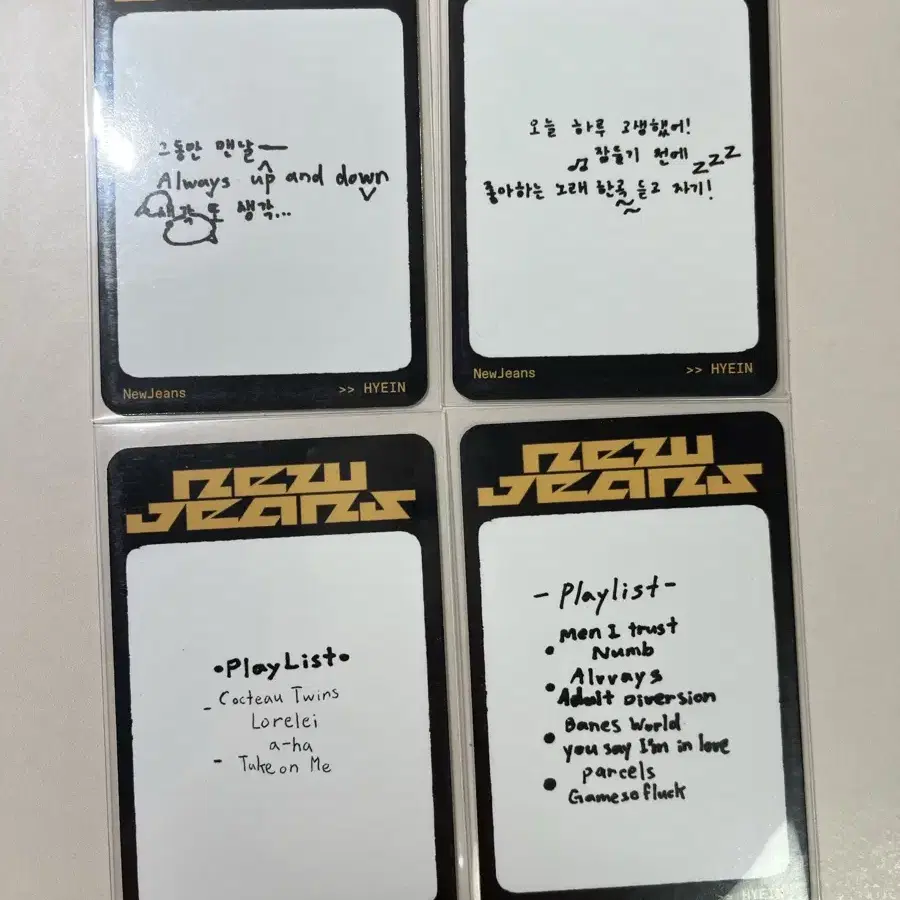 그동안 맨날—
Always up and down
생각 또 생각...
NewJeans >> HYEIN
오늘 하루 고생했어!
잠들기 전에 zzz
좋아하는 노래 한곡 듣고 자기!
NewJeans >> HYEIN
NEW
JEANS
•PlayList•
- Cocteau Twins
Lorelei
a-ha
- Take on Me
NEW
JEANS
- Playlist -
Men I trust
• Numb
Alvvays
• Adult Diversion
Banes World
• you say I'm in love
parcels
• Gamesofluck
>> HYEIN